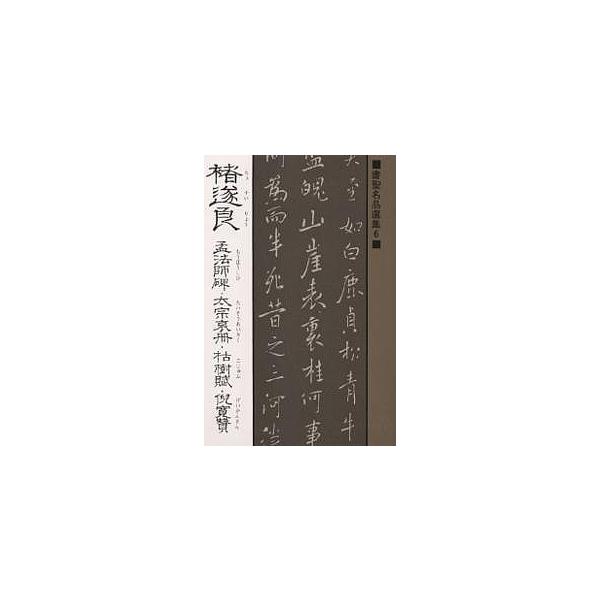 ■書聖名品選集6■
至如白鹿貞松青牛
魄山崖表裏桂何事
爲而半死昔之三河
褚遂良
ちょ すい りょう
孟法師碑・太宗哀冊・枯樹賦・倪寛贊
もうほうしひ たいそうあいさつ こじゅふ げいかんさん